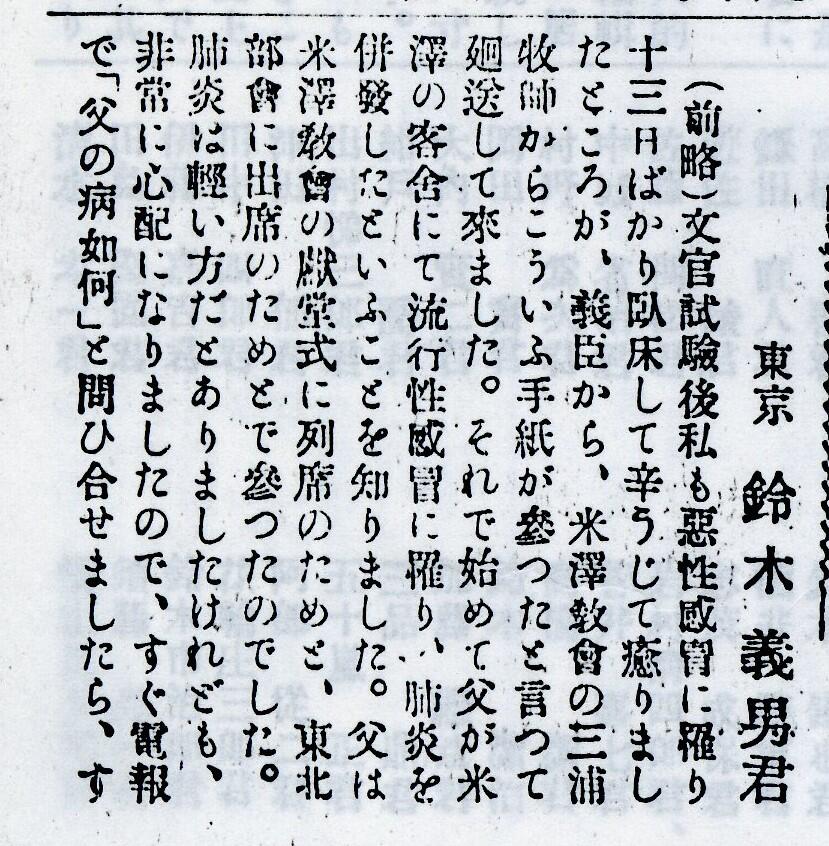 東京 鈴木義男君
(前略)文官試驗後私も惡性感冒に罹り
十三日ばかり臥床して辛うじて癒りまし
たところが、義臣から、米澤敎會の三浦
牧師からこういふ手紙が參つたと言つて
廻送して來ました。それで始めて父が米
澤の客舎にて流行性感冒に罹り、肺炎を
併發したといふことを知りました。父は
米澤敎會の獻堂式に列席のためと、東北
部會に出席のためとで參つたのでした。
肺炎は輕い方だとありましたけれども、
非常に心配になりましたので、すぐ電報
で「父の病如何」と問ひ合せましたら、す